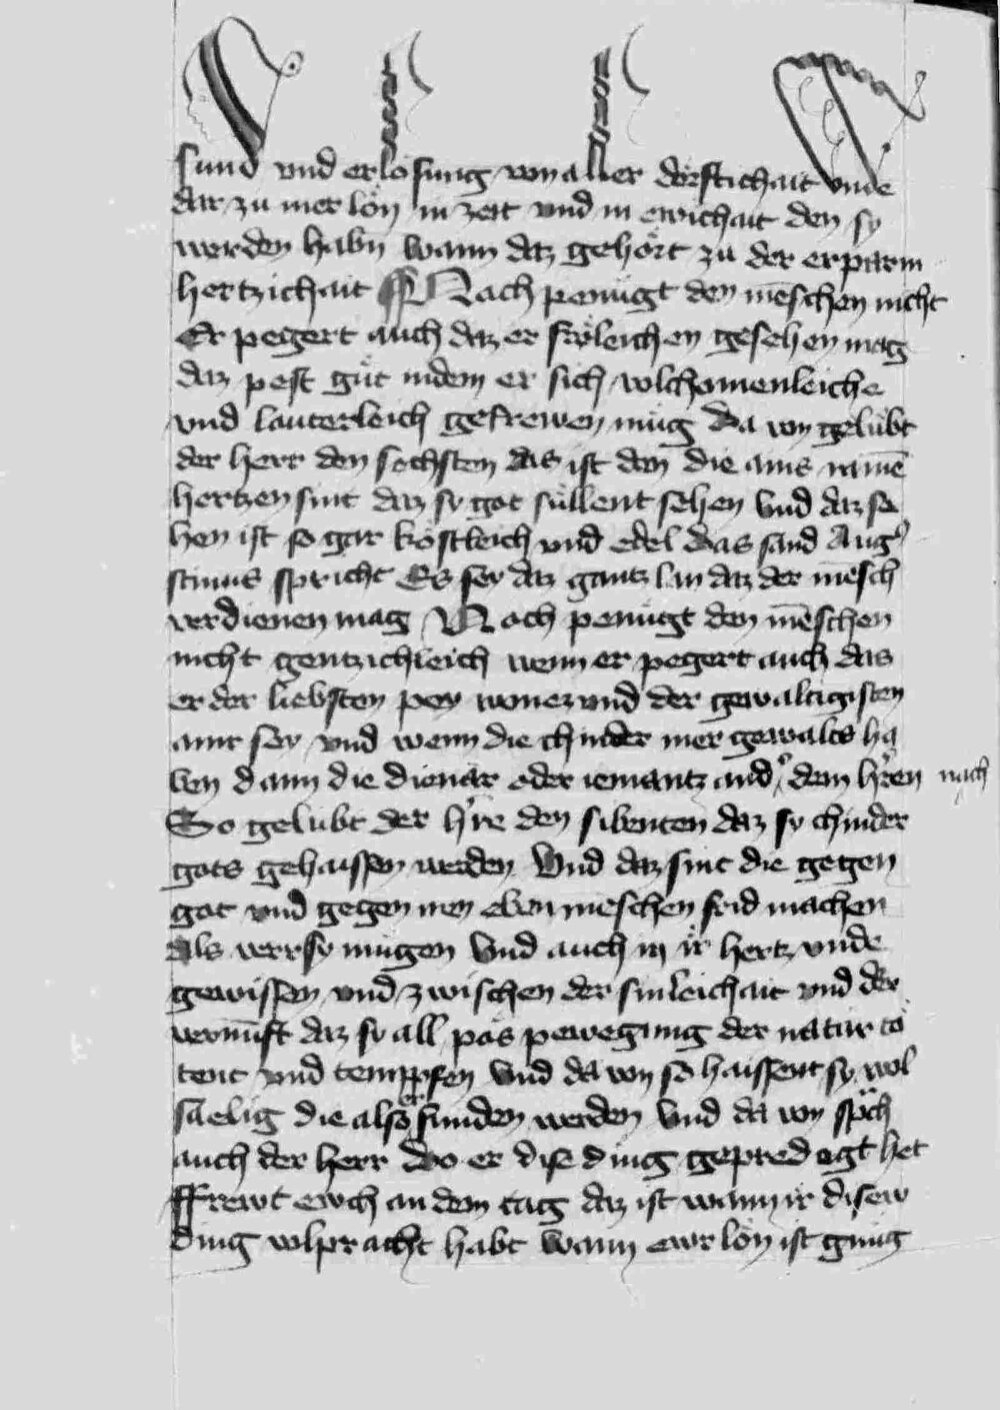 sund vnd erlosung von aller dörftichait vnde
dar zu mer lön in zeit vnd in ewichait den sy
werden habn wann daz gehört zu der erparm
hertzichait Noch penügt den mēschen nicht
Er pegert auch daz er fröleichen gesehen mag
daz pest güt indem er sich volchomenleiche
vnd lauterleich gefrewen müg Da von gelübt
der herr den sechsten das ist den die ains rainē
hertzen sint daz sy got süllent sehen Vnd daz se
hen ist so gar köstleich vnd edel Das sand Augꝰ
stinus spricht Es sey daz gantz lan daz der mēsch
verdienen mag Noch penügt den mēschen
nicht gentzichleich wenn er pegert auch das
er der liebsten pey woner vnd der gewaltigisten
ainr sey vnd wenn die chinder mer gewalts ha
ben dann die dienar oder iemantz andꝰ dem hꝰren nach
So gelübt der hꝰre den sibenten daz sy chinder
gots gehaissen werden Vnd daz sint die gegen
got vnd gegen iren eben mēschen frid machen
als verr sy mügen Vnd auch in ir hertz vnde
gewissen vnd zwischen der sinleichait vnd der
vernūft daz sy all pös pewegung der natur tö
tent vnd tempfen Vnd da von so haissent sy wol
säelig die also erfunden werden Vnd da von spͣch
auch der herr Do er dise ding gepredigt het
ffrewt ewch an dem tag daz ist wann ir disew
ding volpracht habt Wann ewr lön ist genüg